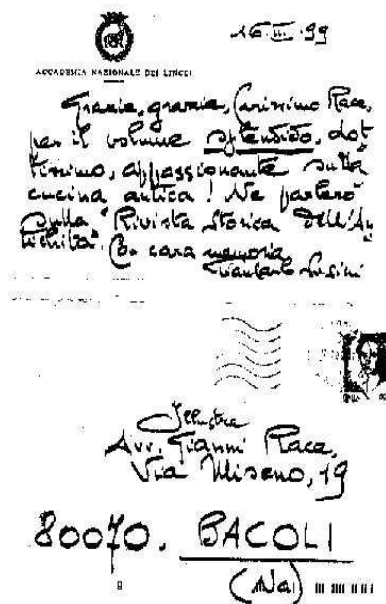 16.III.99
ACCADEMIA NAZIONALE DEI LINCEI
Grazie, grazie, Carissimo Race,
per il volume splendido, dot
tissimo, appassionante sulla
cucina antica! Ne parlerò
sulla "Rivista Storica dell'An
tichità".
Con cara memoria,
Giancarlo Susini
Illustre
Avv. Gianni Race,
Via Miseno, 19
80070. BACOLI
(Na)